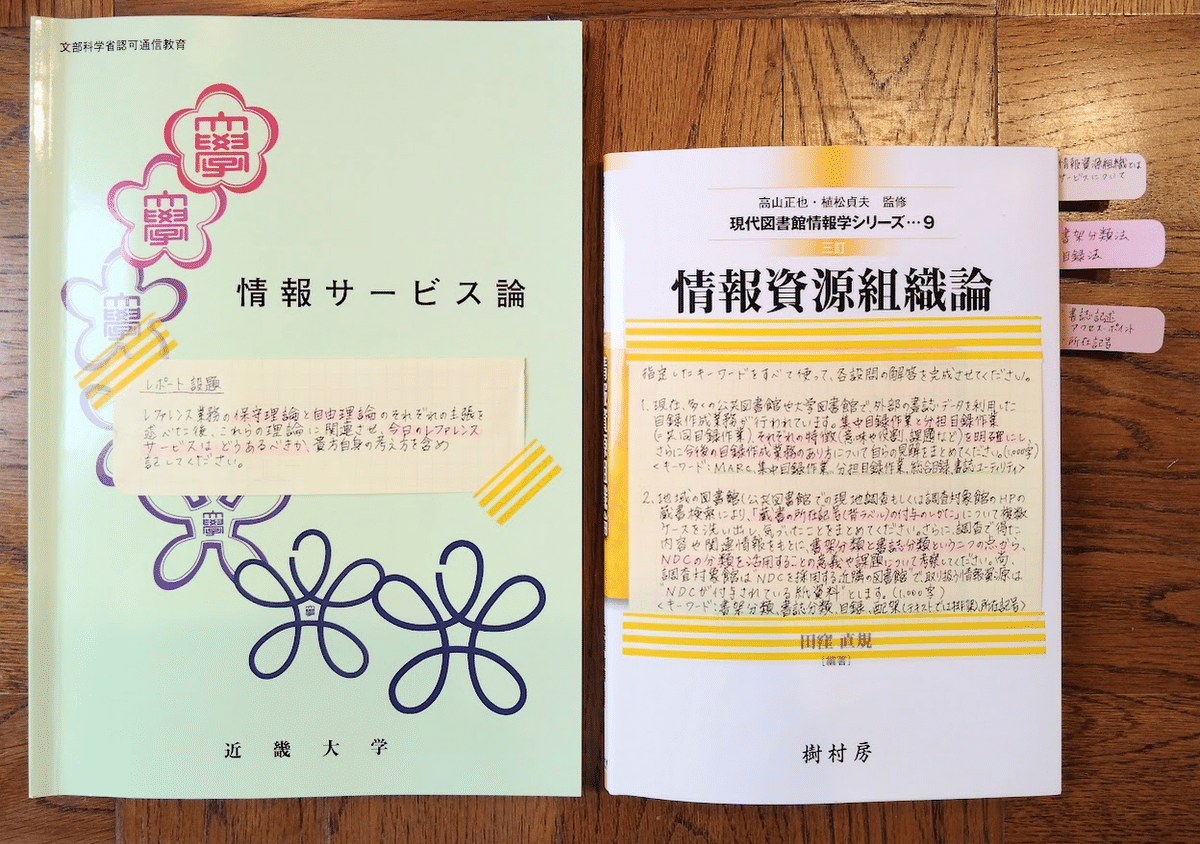 文部科学省認可通信教育
大學
大學
大學
學
學
情報サービス論
レポート設題
レファレンス業務の保守理論と自由理論のそれぞれの主張を
述べた後、これらの理論に関連させ、今日のレファレンス
サービスは、どうあるべきか、貴方自身の考え方を含め
記してください。
近畿大学
高山正也・植松貞夫 監修
現代図書館情報学シリーズ…9
三訂
情報資源組織論
指定したキーワードをすべて使って、各設問の解答を完成させてください。
1. 現在、多くの公共図書館や大学図書館で、外部の書誌データを利用した
目録作成業務が行われています。集中目録作業と分担目録作業
(=共同目録作業)、それぞれの特徴(意味や役割、課題など)を明確にし、
さらに今後の目録作成業務のあり方について自らの見解をまとめてください。(1,000字)
<キーワード:MARC、集中目録作業、分担目録作業、総合目録、書誌ユーティリティ>
2. 地域の図書館(公共図書館での現地調査もしくは調査対象館のHPの
蔵書検索により、「蔵書の所在記号(背ラベル)の付与のしかた」について複数
ケースを洗い出し気づいたことをまとめてください。さらに、調査で得た
内容や関連情報をもとに、書架分類と書誌分類という二つの点から、
NDCの分類を活用することの意義や課題について考察してください。尚、
調査対象館はNDCを採用する近隣の図書館で、取り扱う情報資源は、
"NDCが付与されている紙資料"とします。(1,000字)
<キーワード:書架分類、書誌分類、目録、配架(テキストでは排架)、所在記号>
田窪直規
[編著]
樹村房
情報資源組織とは
サービスについて
書架分類法
目録法
・書誌記述
・アクセス・ポイント
・所在記号